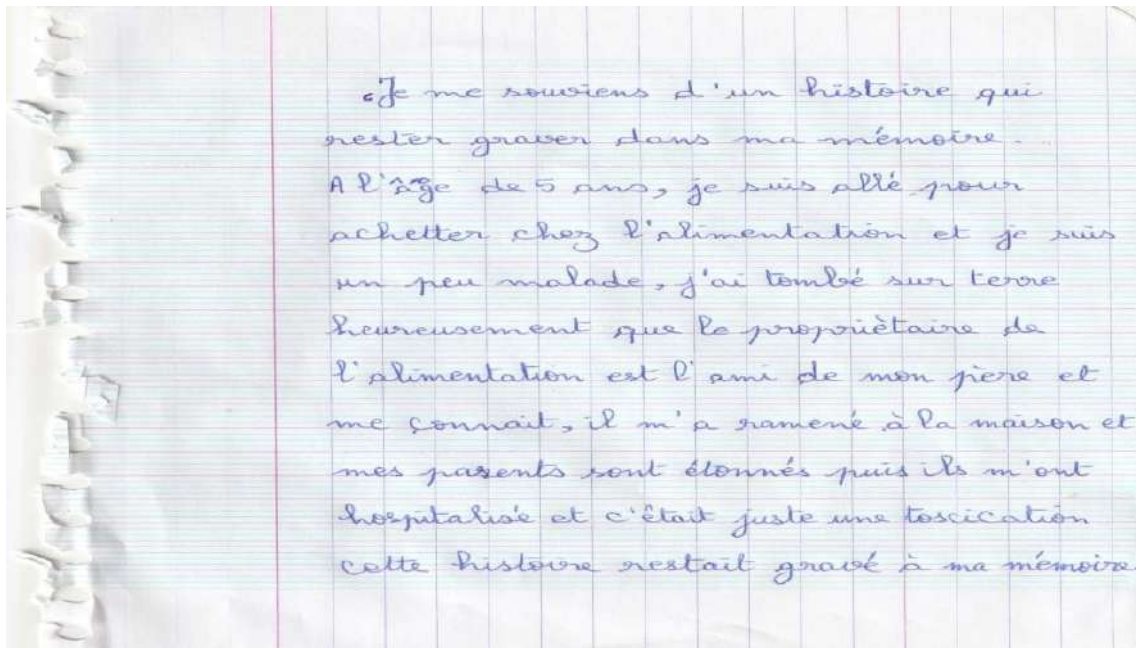 Je me souviens d'un histoire qui
rester graver dans ma mémoire.
A l'âge de 5 ans, je suis allé pour
achetter chez l'alimentation et je suis
un peu malade, j'ai tombé sur terre
heureusement que le propriètaire de
l'alimentation est l'ami de mon piere et
me connait, il m'a ramené à la maison et
mes parents sont étonnés puis ils m'ont
hospitalisé et c'était juste une toscication
cette histoire restait gravé à ma mémoire